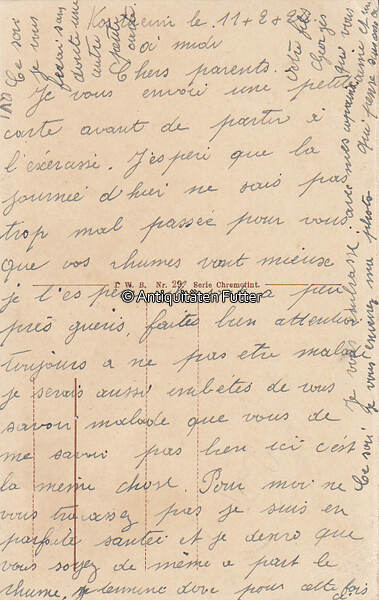 le 11+2+
à midi
Chers parents.
Je vous envoi une petite
carte avant de partir à
l'éxercisse. J'esperi que la
journée d'hier ne sais pas
trop mal passée pour vous
que vos rhumes vont mieux
je l'espère
T. W. B. Nr. 29. Serie Chromotint.
© Antiquitäten Futter
près gueris, faites bien attention
toujours a ne pas etre malade
je serais aussi embêtés de vous
savoir malade que vous de
me savoir pas bien ici c'est
la même chose. Pour moi ne
vous tracassez pas je suis en
parfaite santée et je desire que
vous soyez de même a part le
rhume, je termine donc pour cette fois
Ce soi je vous
ferai sans
doute une
autre
carte
votre fils
Georges
que vous
Je vous embrasse
Ce soir je vous enverrez ma photo